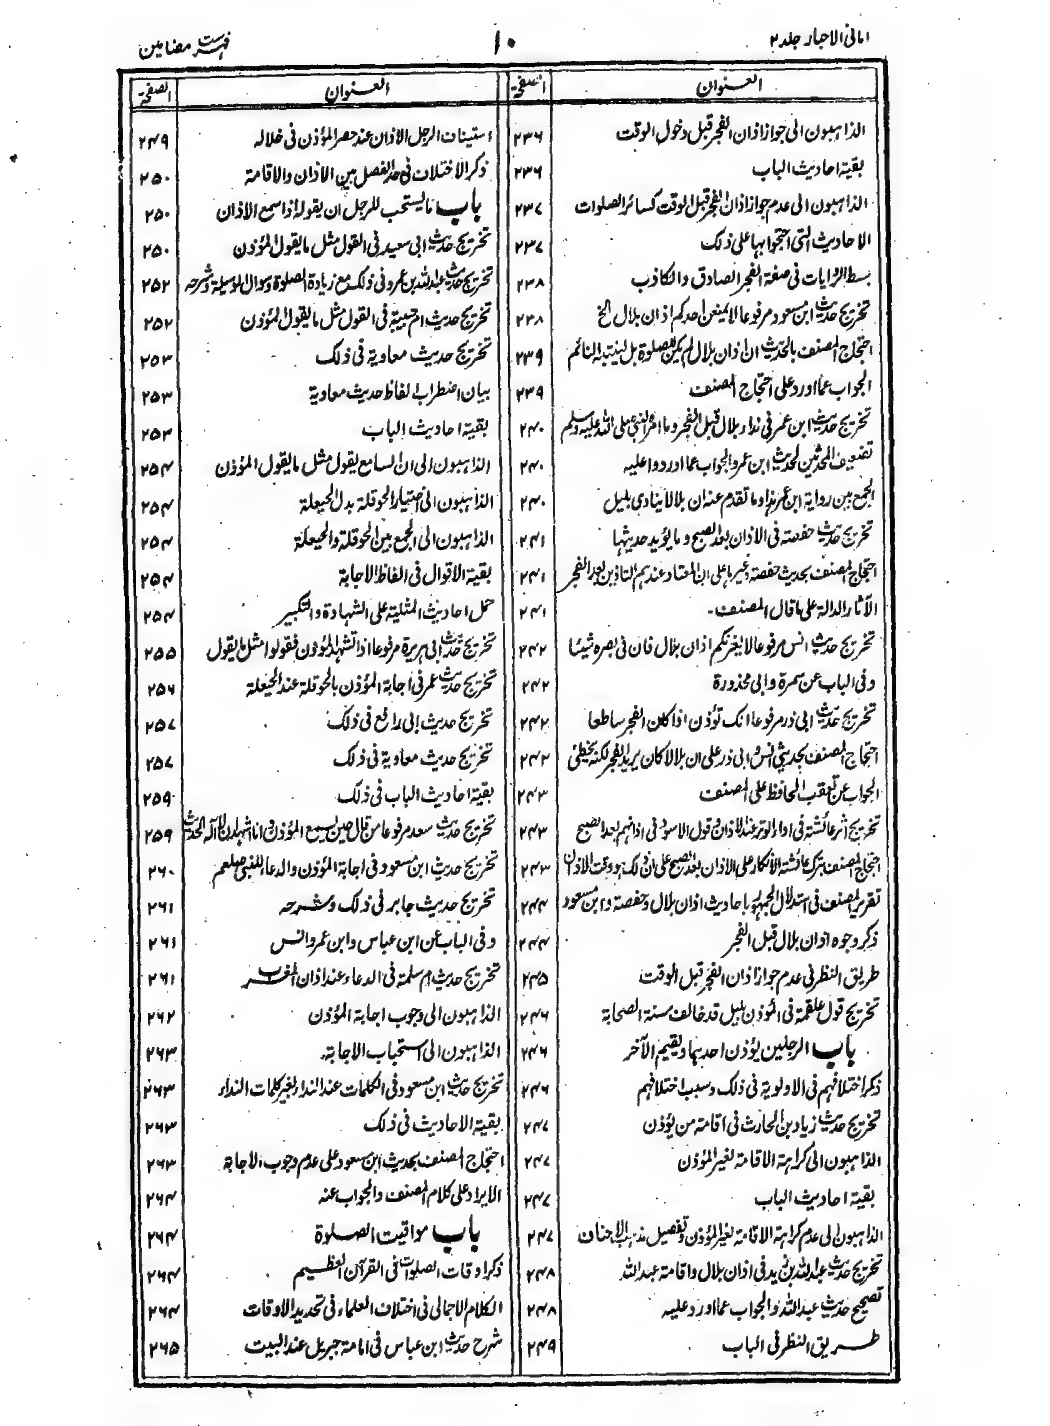 امانی الاحبار جلد ۲
۱۰
فہرست مضامین
العنوان
الصفحة
الذاہبون الی جواز اذان الفجر قبل دخول الوقت ۲۳۶
بقیة احادیث الباب ۲۳۶
الذاہبون الی عدم جواز اذان الفجر قبل الوقت کسائر الصلوات ۲۳۷
الاحادیث التی احتجوا بہا علی ذلک ۲۳۷
بسط الروایات فی صفة الفجر الصادق والکاذب ۲۳۸
تخریج حدیث ابن مسعود مرفوعا لا یمنعن احدکم اذان بلال الخ ۲۳۸
احتجاج المصنف بالحدیث ان اذان بلال لم یکن للصلوة بل لینتبہ النائم ۲۳۹
الجواب عما اورد علی احتجاج المصنف ۲۳۹
تخریج حدیث ابن عمر فی نداء بلال قبل الفجر وما امرہ النبی صلی اللہ علیہ وسلم ۲۴۰
تضعیف المحدثین لحدیث ابن عمر والجواب عما اوردوا علیہ ۲۴۰
الجمع بین روایة ابن عمر ہذا وما تقدم عنہ ان بلالا ینادی بلیل ۲۴۰
تخریج حدیث حفصة فی الاذان بعد الصبح وما یؤید حدیثہا ۲۴۱
احتجاج المصنف بحدیث حفصة وغیرہا علی ان المعتاد عندہم التاذین بعد الفجر ۲۴۱
الآثار الدالة علی ما قال المصنف۔ ۲۴۱
تخریج حدیث انس مرفوعا لا یغرنکم اذان بلال فان فی بصرہ شیئا ۲۴۲
وفی الباب عن سمرة وابی محذورة ۲۴۲
تخریج حدیث ابی ذر مرفوعا انک تؤذن اذا کان الفجر ساطعا ۲۴۲
احتجاج المصنف بحدیثی انس وابی ذر علی ان بلالا کان یرید الفجر لکنہ یخطئ ۲۴۲
الجواب عن تعقب الحافظ علی المصنف ۲۴۳
تخریج اثر عائشة فی اداء الوتر عند الاذان وقول الاسود فی اذانہم بعد الصبح ۲۴۳
احتجاج المصنف بترک عائشة الانکار علی الاذان بعد الصبح علی ان ذلک ہو وقت الاذان ۲۴۳
تقریر المصنف فی استدلال الجمہور باحادیث اذان بلال وحفصة وابن مسعود ۲۴۴
ذکر وجوہ اذان بلال قبل الفجر ۲۴۴
طریق النظر فی عدم جواز اذان الفجر قبل الوقت ۲۴۵
تخریج قول علقمة فی المؤذن بلیل قد خالف سنة الصحابة ۲۴۶
باب الرجلین یؤذن احدہما ویقیم الآخر ۲۴۶
ذکر اختلافہم فی الاولویة فی ذلک وسبب اختلافہم ۲۴۶
تخریج حدیث زیاد بن الحارث فی اقامة من یؤذن ۲۴۷
الذاہبون الی کراہة الاقامة لغیر المؤذن ۲۴۷
بقیة احادیث الباب ۲۴۷
الذاہبون الی عدم کراہة الاقامة لغیر المؤذن وتفصیل مذہب الاحناف ۲۴۷
تخریج حدیث عبد اللہ بن زید فی اذان بلال واقامة عبد اللہ ۲۴۸
تصحیح حدیث عبد اللہ والجواب عما اورد علیہ ۲۴۸
طریق النظر فی الباب ۲۴۹
العنوان
الصفحة
استیناف الرجل الاذان عند حصر المؤذن فی خلالہ ۲۴۹
ذکر الاختلاف فی حد الفصل بین الاذان والاقامة ۲۵۰
باب ما یستحب للرجل ان یقولہ اذا سمع الاذان ۲۵۰
تخریج حدیث ابی سعید فی القول مثل ما یقول المؤذن ۲۵۰
تخریج حدیث عبد اللہ بن عمرو فی ذلک مع زیادة الصلوة وسوال الوسیلة وشرحہ ۲۵۲
تخریج حدیث ام حبیبة فی القول مثل ما یقول المؤذن ۲۵۲
تخریج حدیث معاویة فی ذلک ۲۵۳
بیان اضطراب الفاظ حدیث معاویة ۲۵۳
بقیة احادیث الباب ۲۵۳
الذاہبون الی ان السامع یقول مثل ما یقول المؤذن ۲۵۴
الذاہبون الی اختیار الحوقلة بدل الحیعلة ۲۵۴
الذاہبون الی الجمع بین الحوقلة والحیعلة ۲۵۴
بقیة الاقوال فی الفاظ الاجابة ۲۵۴
حمل احادیث المثلیة علی الشہادة والتکبیر ۲۵۴
تخریج حدیث ابی ہریرة مرفوعا اذا تشہد المؤذن فقولوا مثل ما یقول ۲۵۵
تخریج حدیث عمر فی اجابة المؤذن بالحوقلة عند الحیعلة ۲۵۶
تخریج حدیث ابی رافع فی ذلک ۲۵۷
تخریج حدیث معاویة فی ذلک ۲۵۷
بقیة احادیث الباب فی ذلک ۲۵۹
تخریج حدیث سعد مرفوعا من قال حین یسمع المؤذن وانا اشہد ان لا الہ الا اللہ الحدیث ۲۵۹
تخریج حدیث ابن مسعود فی اجابة المؤذن والدعاء للنبی صلعم ۲۶۰
تخریج حدیث جابر فی ذلک وشرحہ ۲۶۱
وفی الباب عن ابن عباس وابن عمر وانس ۲۶۱
تخریج حدیث ام سلمة فی الدعاء عند اذان المغرب ۲۶۱
الذاہبون الی وجوب اجابة المؤذن ۲۶۲
الذاہبون الی استحباب الاجابة۔ ۲۶۳
تخریج حدیث ابن مسعود فی الکلمات عند النداء بغیر کلمات النداء ۲۶۳
بقیة الاحادیث فی ذلک ۲۶۳
احتجاج المصنف بحدیث ابن مسعود علی عدم وجوب الاجابة ۲۶۳
الایراد علی کلام المصنف والجواب عنہ ۲۶۴
باب مواقیت الصلوة ۲۶۴
ذکر اوقات الصلوات فی القرآن العظیم ۲۶۴
الکلام الاجمالی فی اختلاف العلماء فی تحدید الاوقات ۲۶۴
شرح حدیث ابن عباس فی امامة جبریل عند البیت ۲۶۵